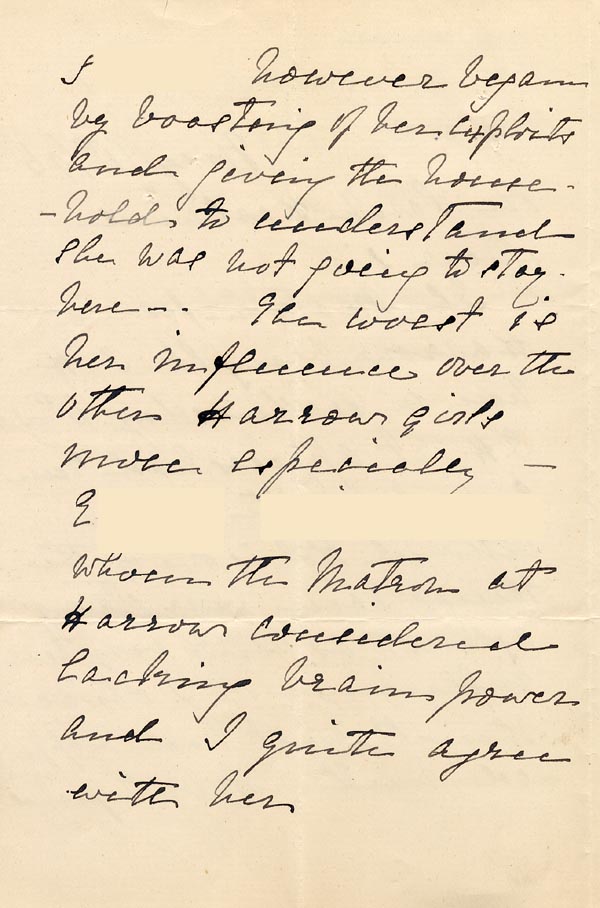 I however began
by boasting of her exploits
and giving the house-
-hold to understand
she was not going to stay
here -. The worst is
her influence over the
other Harrow girls
more especially —
E
whom the Matron at
Harrow considered
lacking brain power
and I quite agree
with her